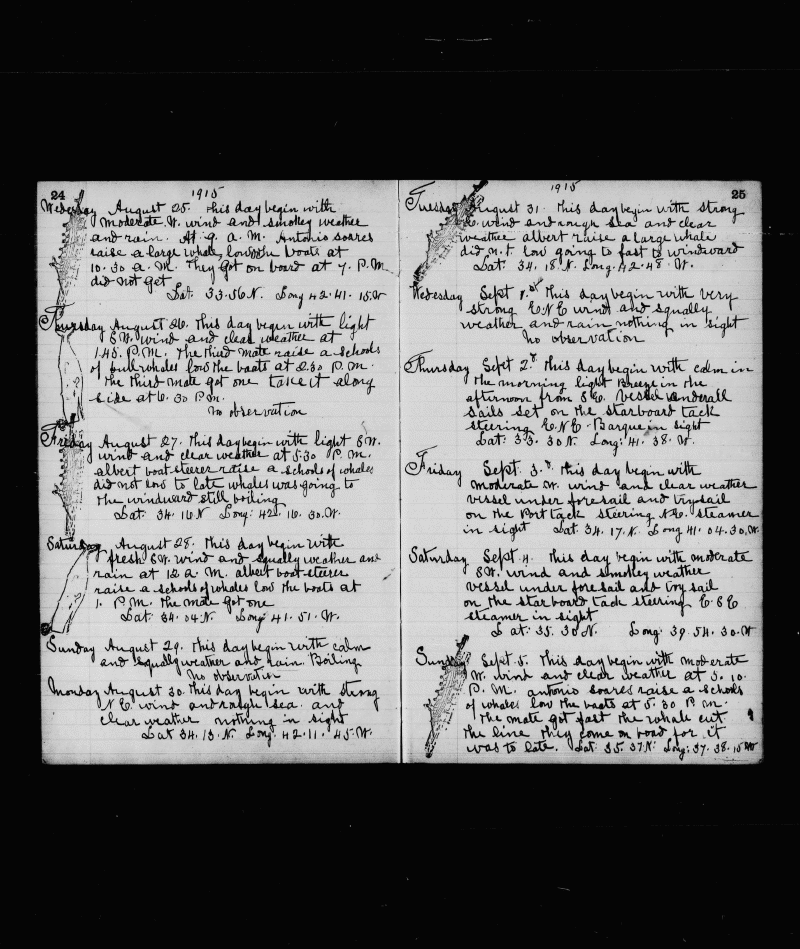 24
1915
Wedesday August 25. This day begin with
moderate W. wind and smokey weather
and rain. At 9. a. M. Antonio soares
raise a large whale, low the boats at
10.30 a. M. They got on board at 7. P.M.
did not get
Lat. 33.56 N. Long 42.41.15 W
Thursday August 26. This day begin with light
SW. wind and clear weather at
1.45. P.M. The third mate raise a schools
of bull whales low the boats at 2.30 P.M.
The third mate got one take it along
side at 6.30 P.M.
No observation
Friday August 27. This day begin with light SW.
wind and clear weather at 5.30 P.M.
albert boat-steerer raise a schools of whales
did not low to late whales was going to
the windward still boiling
Lat. 34.16 N Long: 42.16.30.W.
Saturday August 28. This day begin with
fresh SW. wind and squally weather and
rain at 12 a. M. albert boat-steerer
raise a schools of whales low the boats at
1. P.M. The mate got one
Lat. 34.04 N. Long 41.51.W.
Sunday August 29. This day begin with calm
and squally weather and rain. Boiling
No observation
Monday August 30. This day begin with strong
N.E. wind and rough sea. and
clear weather nothing in sight
Lat 34.13.N. Long. 42.11.45.W.
1915
25
Tuesday August 31. This day begin with strong
wind and rough sea and clear
weather albert raise a large whale
did not low going to fast to windward
Lat. 34.18.N. Long. 42.48.W.
Wedesday Sept 1.st This day begin with very
strong E.N.E wind and squally
weather and rain nothing in sight
No observation
Thursday Sept 2. This day begin with calm in
the morning light Breeze in the
afternoon from S.E. Vessel under all
sails set on the starboard tack
steering E.N.E. Barque in sight
Lat: 33.30 N. Long: 41.38.W.
Friday Sept. 3. This day begin with
moderate W. wind and clear weather
vessel under foresail and trysail
on the Port tack steering N.E. steamer
in sight Lat. 34.17.N. Long 41.04.30.W.
Saturday Sept. 4. This day begin with moderate
SW. wind and smokey weather
vessel under foresail and try sail
on the starboard tack steering E.S.E
steamer in sight
Lat: 35.30 N. Long: 39.54.30.W
Sunday Sept. 5. This day begin with moderate
W. wind and clear weather at 5.10.
P.M. antonio soares raise a schools
of whales low the boats at 5.30 P.M.
The mate got fast the whale cut
the line they come on boad for it
was to late. Lat: 35.37 N: Long: 37.38.15 W